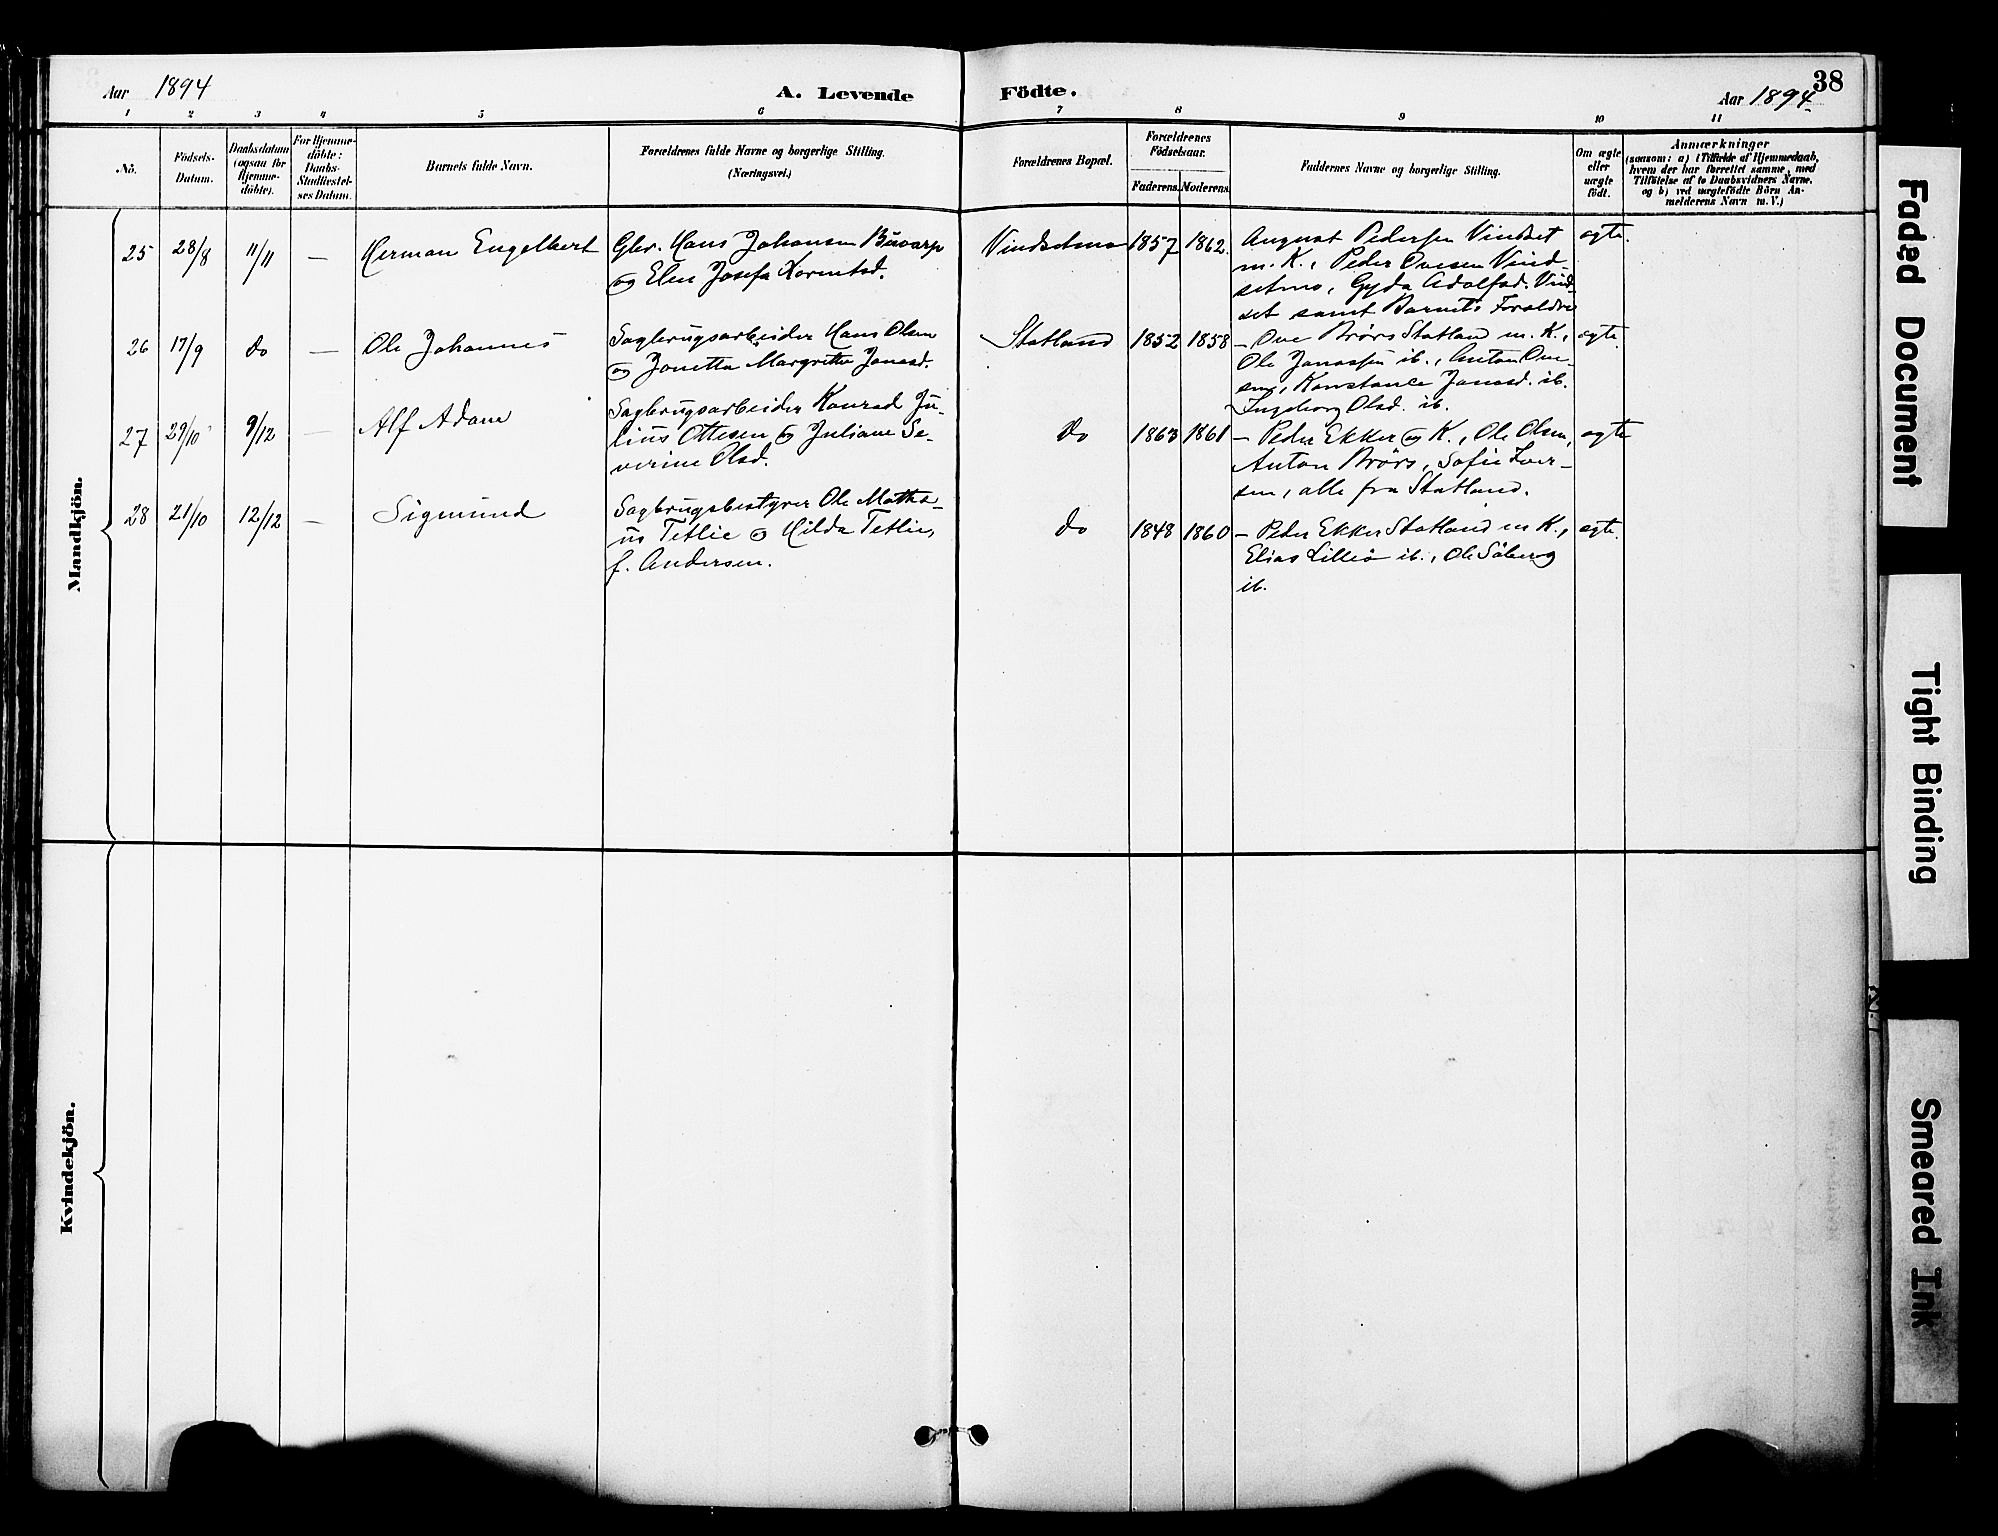 Aar 1894
A. Levende Födte.
Aar 1894.
38
1 2 3 4 5 6 7 8 9 10 11
No.
Födsels-Datum.
Daabsdatum (ogsaa for Hjemmedöbte).
For Hjemmedöbte: Daabs-Stadfæstelses Datum.
Barnets fulde Navn.
Forældrenes fulde Navne og borgerlige Stilling. (Næringsvei.)
Forældrenes Bopæl.
Forældrenes Födselsaar.
Faderens. Moderens.
Faddernes Navne og borgerlige Stilling.
Om ægte eller uægte födt.
Anmærkninger
(saasom: a) i Tilfælde af Hjemmedaab,
hvem der har forrettet samme, med
Tilföielse af to Daabsvidners Navne,
og b) ved uægtefödte Börn An-
melderens Navn m. V.)
Mandkjön.
25 28/8 11/11 — Herman Engelbert
Gbr. Hans Johansen Büvarp
og Elen Josefa Kornelsd.
Vindsetmo 1857 1862.
August Pedersen Vindset
m. K., Peder Ovesen Vind-
setmo, Gyda Adolfsd. Vind-
set samt Barnets Forældre
ægte.
26 17/9 do — Ole Johannes
Sagbrugsarbeider Hans Olsen
og Jonetta Margrethe Jonasd.
Statland 1852 1858
— Ove Brörs Statland m. K.,
Ole Jonassen ib., Anton Ove-
sen, Konstance Jonasd. ib.
Ingeborg Olsd. ib.
ægte.
27 29/10 9/12 — Alf Adam
Sagbrugsarbeider Konrad Ju-
lius Ottesen og Juliane Se-
verine Olsd.
do 1863 1861
— Peder Ekker og K., Ole Olsen,
Anton Brörs, Sofie Iver-
sen, alle fra Statland.
ægte
28 21/10 12/12 — Sigmund
Sagbrugsbestyrer Ole Mathe-
us Tetlie og Hilda Tetlie,
f. Andersen.
do 1848 1860
— Peder Ekker Statland m K.,
Elias Lilleö ib., Ole Söberg
ib.
ægte.
Kvindekjön.
Faded Document
Tight Binding
Smeared Ink